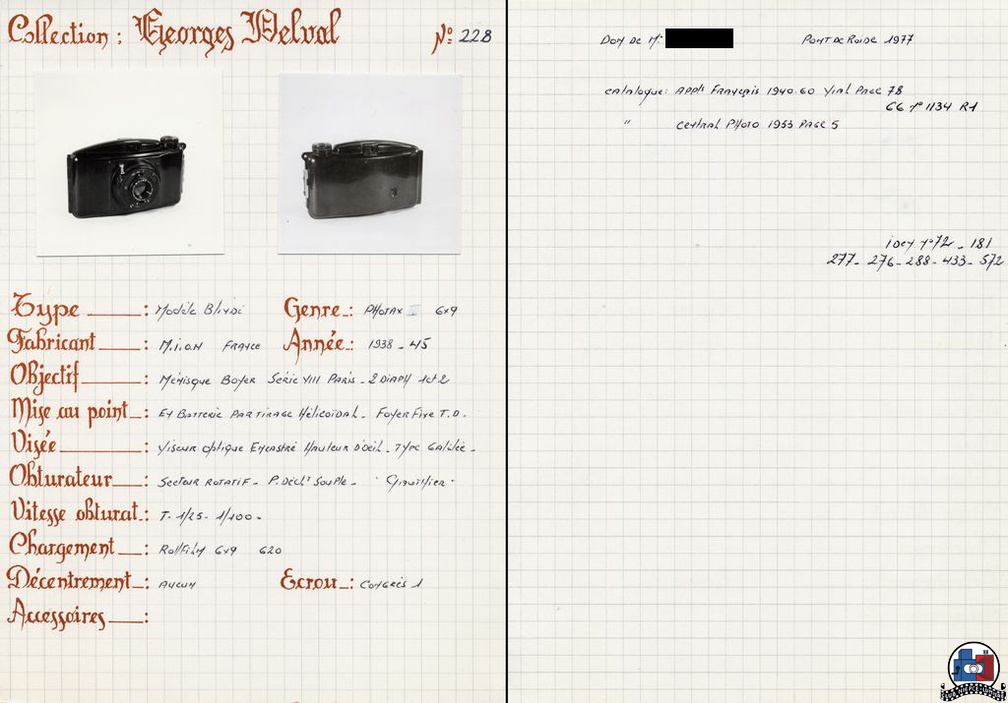 Collection : Georges Delval N° 228
Type : Modèle Blindé Genre : PHOTAX I 6x9
Fabricant : M.I.O.M FRANCE Année : 1938 - 45
Objectif : Ménisque Boyer Série VIII Paris - 2 DIAPH 1et 2
Mise au point : EN BATTERIE PAR TIRAGE HélicoïDAL - Foyer Fixe T.D.
Visée : Viseur optique Encastré Hauteur D'oeil - Type Galilée -
Obturateur : Secteur ROTATIF - P. Décl^t SouPle - "Gitzo"
Vitesse obturat. : T - 1/25 - 1/100 -
Chargement : RollFilM 6x9 620
Décentrement : AUCUN Ecrou : CONGRÈS 1
Accessoires :
DON DE Mr PONT DE ROIDE 1977
catalogue : APPls Français 1940-60 Vial PAGE 78
CG n° 1134 R1
" Central PHOTO 1953 PAGE 5
iDEM n° 72 - 181
277 - 276 - 288 - 433 - 572